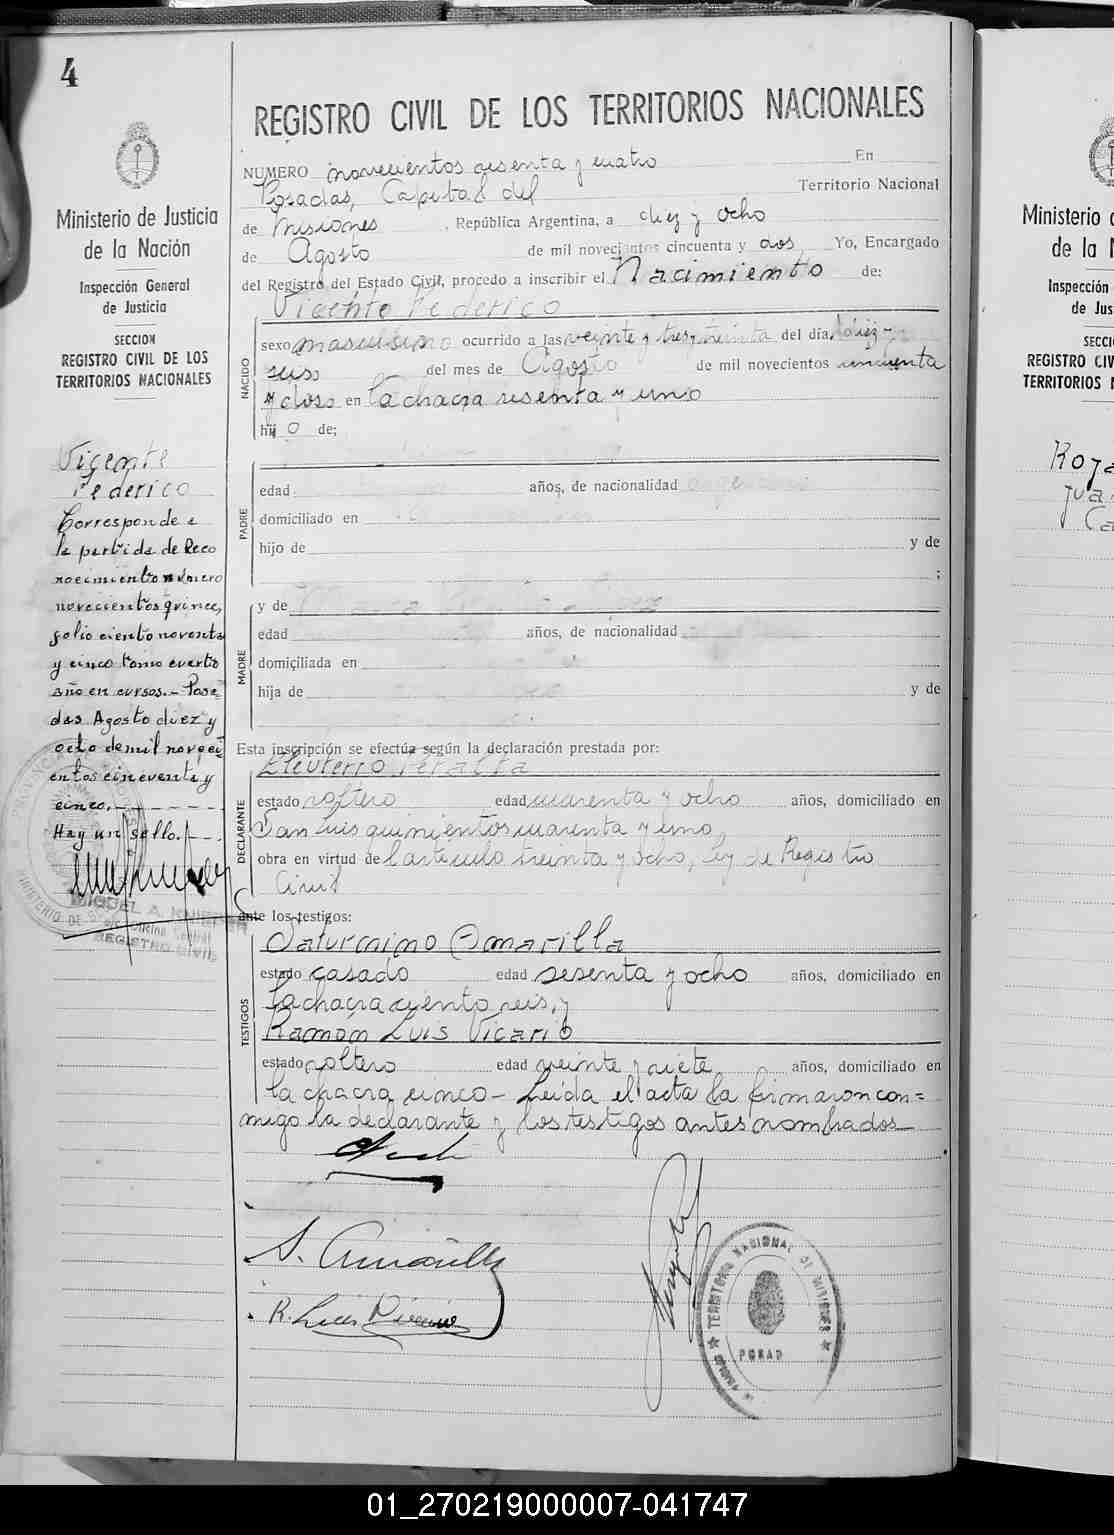 4
Ministerio de Justicia
de la Nación
Inspección General
de Justicia
SECCION
REGISTRO CIVIL DE LOS
TERRITORIOS NACIONALES
Vicente
Federico
Corresponde a
la partida de Reco
nocimiento número
novecientos quince,
folio ciento noventa
y cinco tomo cuarto
año en cursos.- Posa-
das Agosto diez y
octo de mil noveci
entos cincuenta y
cinco.
Hay un sello.
MIGUEL A. KNIEBER
REGISTRO CIVIL
REGISTRO CIVIL DE LOS TERRITORIOS NACIONALES
NUMERO novecientos sesenta y cuatro En
Posadas, Capital del Territorio Nacional
de Misiones, República Argentina, a diez y ocho
de Agosto de mil novecientos cincuenta y dos, Yo, Encargado
del Registro del Estado Civil, procedo a inscribir el Nacimiento de:
Vicente Federico
NACIDO
sexo masculino ocurrido a las veinte y tres y treinta del día diez y
seis del mes de Agosto de mil novecientos cincuenta
y dos en la chacra sesenta y uno
hijo de;
PADRE
edad años, de nacionalidad argentino
domiciliado en
hijo de y de
;
MADRE
y de
edad años, de nacionalidad
domiciliada en
hija de y de
Esta inscripción se efectúa según la declaración prestada por:
DECLARANTE
Eleuterio Peralta
estado soltero edad cuarenta y ocho años, domiciliado en
San Luis quinientos cuarenta y uno,
obra en virtud del artículo treinta y ocho, Ley de Registro
Civil
ante los testigos:
TESTIGOS
Saturnino Amarilla
estado casado edad sesenta y ocho años, domiciliado en
la chacra ciento seis, y
Ramón Luis Vicario
estado soltero edad veinte y siete años, domiciliado en
la chacra cinco - Leída el acta la firmaron con=
migo la declarante y los testigos antes nombrados
S. Amarilla
R. Luis Vicario
TERRITORIO NACIONAL DE MISIONES
POSAD
Ministerio
de la
Inspección
de Jus
SECCI
REGISTRO CIV
TERRITORIOS
Roja
Jua
Ca
01_270219000007-041747